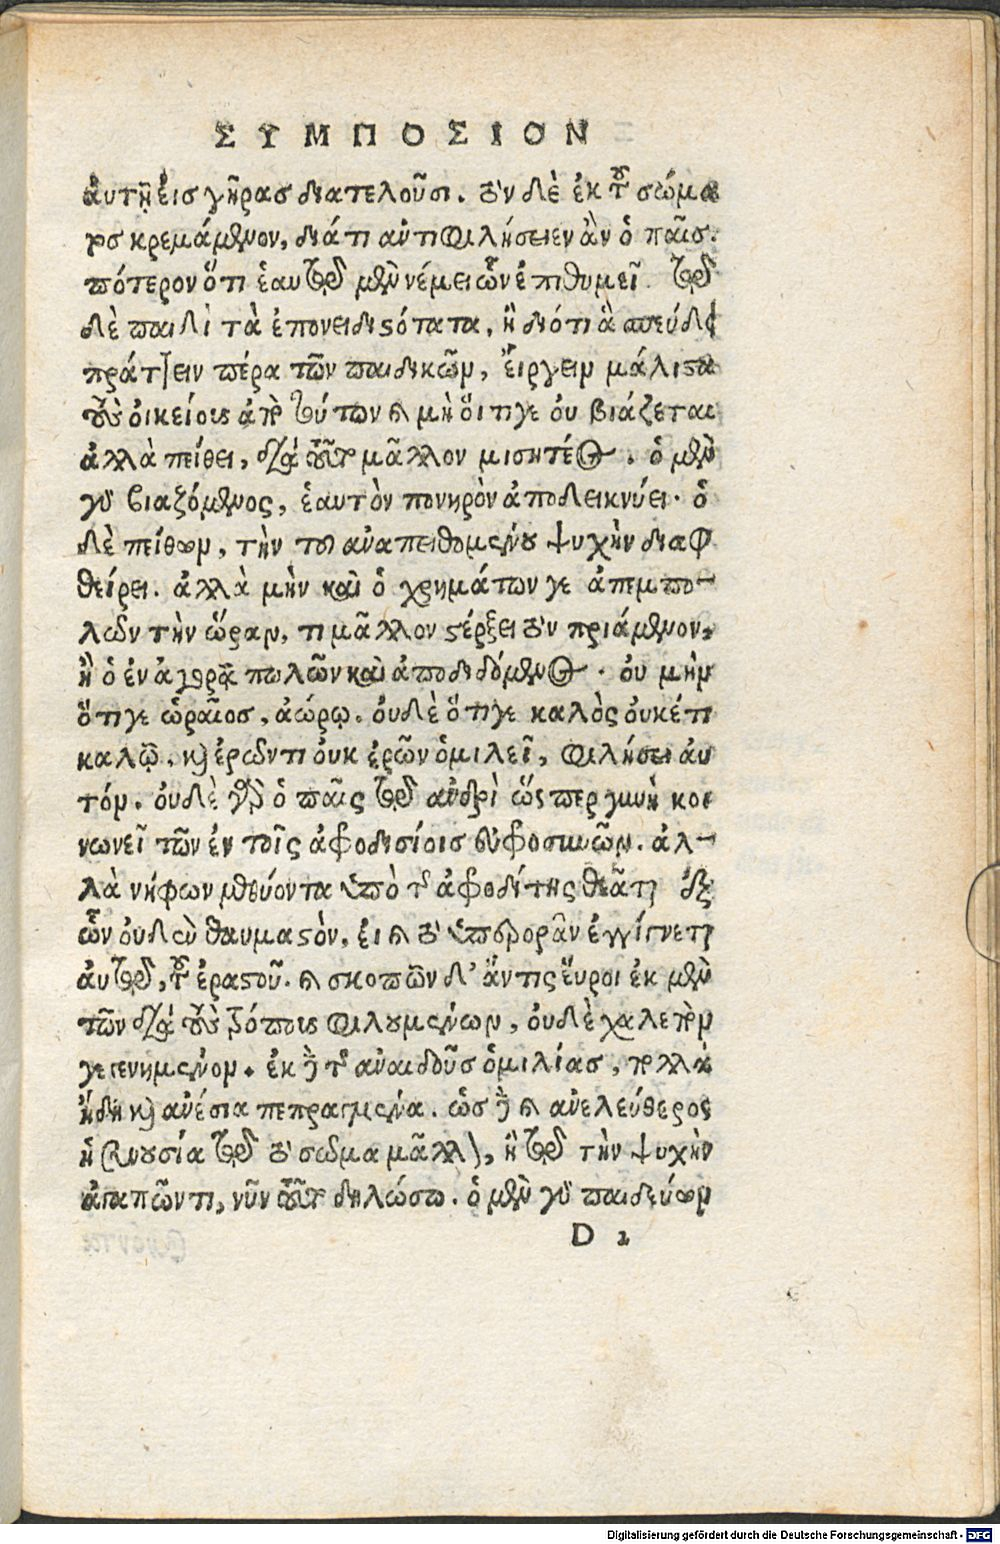 ΣΥΜΠΟΣΙΟΝ
ἀυτῇ ἐισ γῆρασ διατελοῦσι. τὸν δὲ ἐκ τοῦ σώμα
τοσ κρεμάμενον, διάτι ἀντιφιλήσειεν ἂν ὁ παῖσ.
πότερον ὅτι ἑαυτῷ μὲν νέμει ὧν ἐπιθυμεῖ. τῷ
δὲ παιδὶ τὰ ἐπονειδιστότατα, ἢ διότι ἃ σπεύδει
πράττειν πέρα τῶν παιδικῶν, ἔιργειν μάλιστα
τοὺς οἰκείους ἀπὸ τούτων καὶ μὴ ὅιτι γε ὀυ βιάζεται
ἀλλὰ πείθει, διὰ τοῦτο μᾶλλον μισητέος. ὁ μὲν
γὰρ βιαζόμενος, ἑαυτὸν πονηρὸν ἀποδεικνύει. ὁ
δὲ πείθων, τὴν του ἀναπειθομένου ψυχὴν διαφ
θείρει. ἀλλὰ μὴν καὶ ὁ χρημάτων γε ἀπεμπο-
λῶν τὴν ὥραν, τι μᾶλλον στέρξει τὸν πριάμενον,
ἢ ὁ ἐν ἀγορᾷ πωλῶν καὶ ἀποδιδόμενος. ὀυ μὴν
ὅτι γε ὡραῖοσ, ἀώρῳ. ὀυδὲ ὅτι γε καλὸς ὀυκέτι
καλῷ. καὶ ἐρῶντι ὀυκ ἐρῶν ὁμιλεῖ, φιλήσει ἀυ
τόν. ὀυδὲ γὰρ ὁ παῖς τῷ ἀνδρὶ ὥσπερ γυνὴ κοι
νωνεῖ τῶν ἐν τοῖς ἀφροδισίοισ ἐυφροσυνῶν. ἀλ-
λὰ νήφων μεθύοντα ὑπὸ τῆς ἀφροδίτης θεᾶται ἐξ
ὧν ὀυδὲν θαυμαστὸν, ἐι καὶ τὸ ὑπερορᾶν ἐγγίγνεται
ἀυτῷ, τοῦ ἐραστοῦ. καὶ σκοπῶν δ' ἄν τις ἕυροι ἐκ μὲν
τῶν διὰ τοὺς τρόπους φιλουμένων, ὀυδὲ χαλεπὸν
γεγενημένον. ἐκ δὲ τῆς ἀναιδοῦσ ὁμιλίασ, πολλὰ
ἤδη καὶ ἀνόσια πεπραγμένα. ὡσ δὲ καὶ ἀνελεύθερος
ἡ συνουσία τῷ τὸ σῶμα μᾶλλον, ἢ τῷ τὴν ψυχὴν
ἀγαπῶντι, νῦν τοῦτο δηλώσω. ὁ μὲν γὰρ παιδεύων
D 2